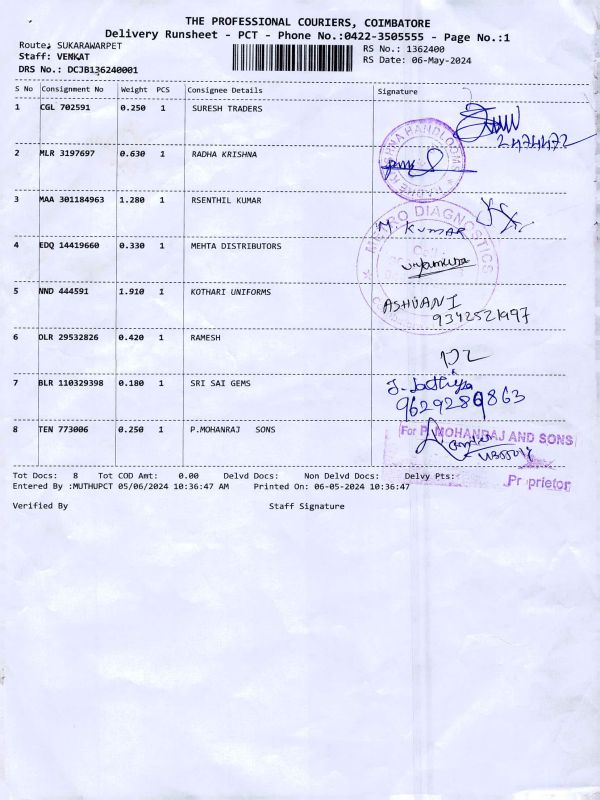 THE PROFESSIONAL COURIERS, COIMBATORE
Delivery Runsheet - PCT - Phone No.:0422-3505555 - Page No.:1
Route: SUKARAWARPET
RS No.: 1362400
Staff: VENKAT
RS Date: 06-May-2024
DRS No.: DCJB136240001
S No Consignment No Weight PCS Consignee Details Signature
1 CGL 702591 0.250 1 SURESH TRADERS
2474472
2 MLR 3197697 0.630 1 RADHA KRISHNA
3 MAA 301184963 1.280 1 RSENTHIL KUMAR
M. KUMAR
METRO DIAGNOSTICS
4 EDQ 14419660 0.330 1 MEHTA DISTRIBUTORS
5 NND 444591 1.910 1 KOTHARI UNIFORMS
ASHVANI
9342521997
6 DLR 29532826 0.420 1 RAMESH
7 BLR 110329398 0.180 1 SRI SAI GEMS
9629289863
8 TEN 773006 0.250 1 P.MOHANRAJ SONS
For P. MOHANRAJ AND SONS
Proprietor
Tot Docs: 8 Tot COD Amt: 0.00 Delvd Docs: Non Delvd Docs: Delvy Pts:
Entered By :MUTHUPCT 05/06/2024 10:36:47 AM Printed On: 06-05-2024 10:36:47
Verified By Staff Signature